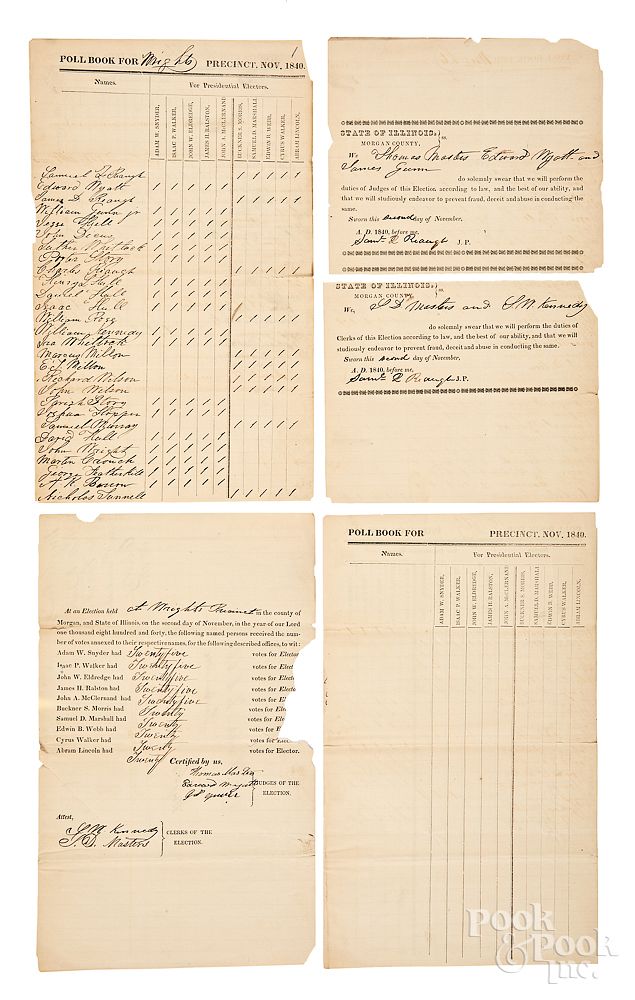 POLL BOOK FOR Wrights PRECINCT. NOV. 1840.
1
Names.
For Presidential Electors.
ADAM W. SNYDER,
ISAAC P. WALKER,
JOHN W. ELDREDGE,
JAMES H. RALSTON,
JOHN A. McCLERNAND
BUCKNER S. MORRIS,
SAMUEL D. MARSHALL
EDWIN B. WEBB,
CYRUS WALKER,
ABRAM LINCOLN,
Samuel Reaugh
Edward Wyatt
James D Reaugh
William Gunn jr
Jesse Hull
John Deeus
Luther Whitlock
Story
Charles Reaugh
Hull
Daniel Hull
Isaac Hull
William Rose
William Kennedy
Ira Whitlock
Marcus Wilson
Wilson
Richard Wilson
John Wilson
Story
Joshua
Samuel Murray
David Hull
John Wright
Martin Crouch
George
A H Barrow
Nicholas
STATE OF ILLINOIS, } ss.
MORGAN COUNTY.
We Thomas Masters Edward Wyatt and
James Gunn
do solemnly swear that we will perform the
duties of Judges of this Election according to law, and the best of our ability, and
that we will studiously endeavor to prevent fraud, deceit and abuse in conducting the
same.
Sworn this second day of November,
A. D. 1840, before me,
Saml R Reaugh J. P.
STATE OF ILLINOIS, } ss.
MORGAN COUNTY.
We, S D Masters and S. M Kennedy
do solemnly swear that we will perform the duties of
Clerks of this Election according to law, and the best of our ability, and that we will
studiously endeavor to prevent fraud, deceit and abuse in conducting the same.
Sworn this second day of November,
A. D. 1840, before me,
Saml R Reaugh J.P.
At an Election held at Wrights Precinct in the county of
Morgan, and State of Illinois, on the second day of November, in the year of our Lord
one thousand eight hundred and forty, the following named persons received the num-
ber of votes annexed to their respective names, for the following described offices, to wit:
Adam W. Snyder had Twentyfive votes for Elector
Isaac P. Walker had Twentyfive votes for Elector
John W. Eldredge had Twentyfive votes for Elect
James H. Ralston had Twentyfive votes for Elect
John A. McClernand had Twentyfive votes for Elec
Buckner S. Morris had Twenty votes for Elec
Samuel D. Marshall had Twenty votes for Ele
Edwin B. Webb had Twenty votes for Ele
Cyrus Walker had Twenty votes for Elec
Abram Lincoln had Twenty votes for Elector.
Certified by us.
Thomas Masters
Edward Wyatt
JUDGES OF THE
ELECTION.
Attest,
S M Kennedy
S. D. Masters
CLERKS OF THE
ELECTION.
POLL BOOK FOR PRECINCT. NOV. 1840.
Names.
For Presidential Electors.
ADAM W. SNYDER,
ISAAC P. WALKER,
JOHN W. ELDREDGE,
JAMES H. RALSTON,
JOHN A. McCLERNAND
BUCKNER S. MORRIS,
SAMUEL D. MARSHALL
EDWIN B. WEBB,
CYRUS WALKER,
ABRAM LINCOLN,
POOK
& POOK
INC.